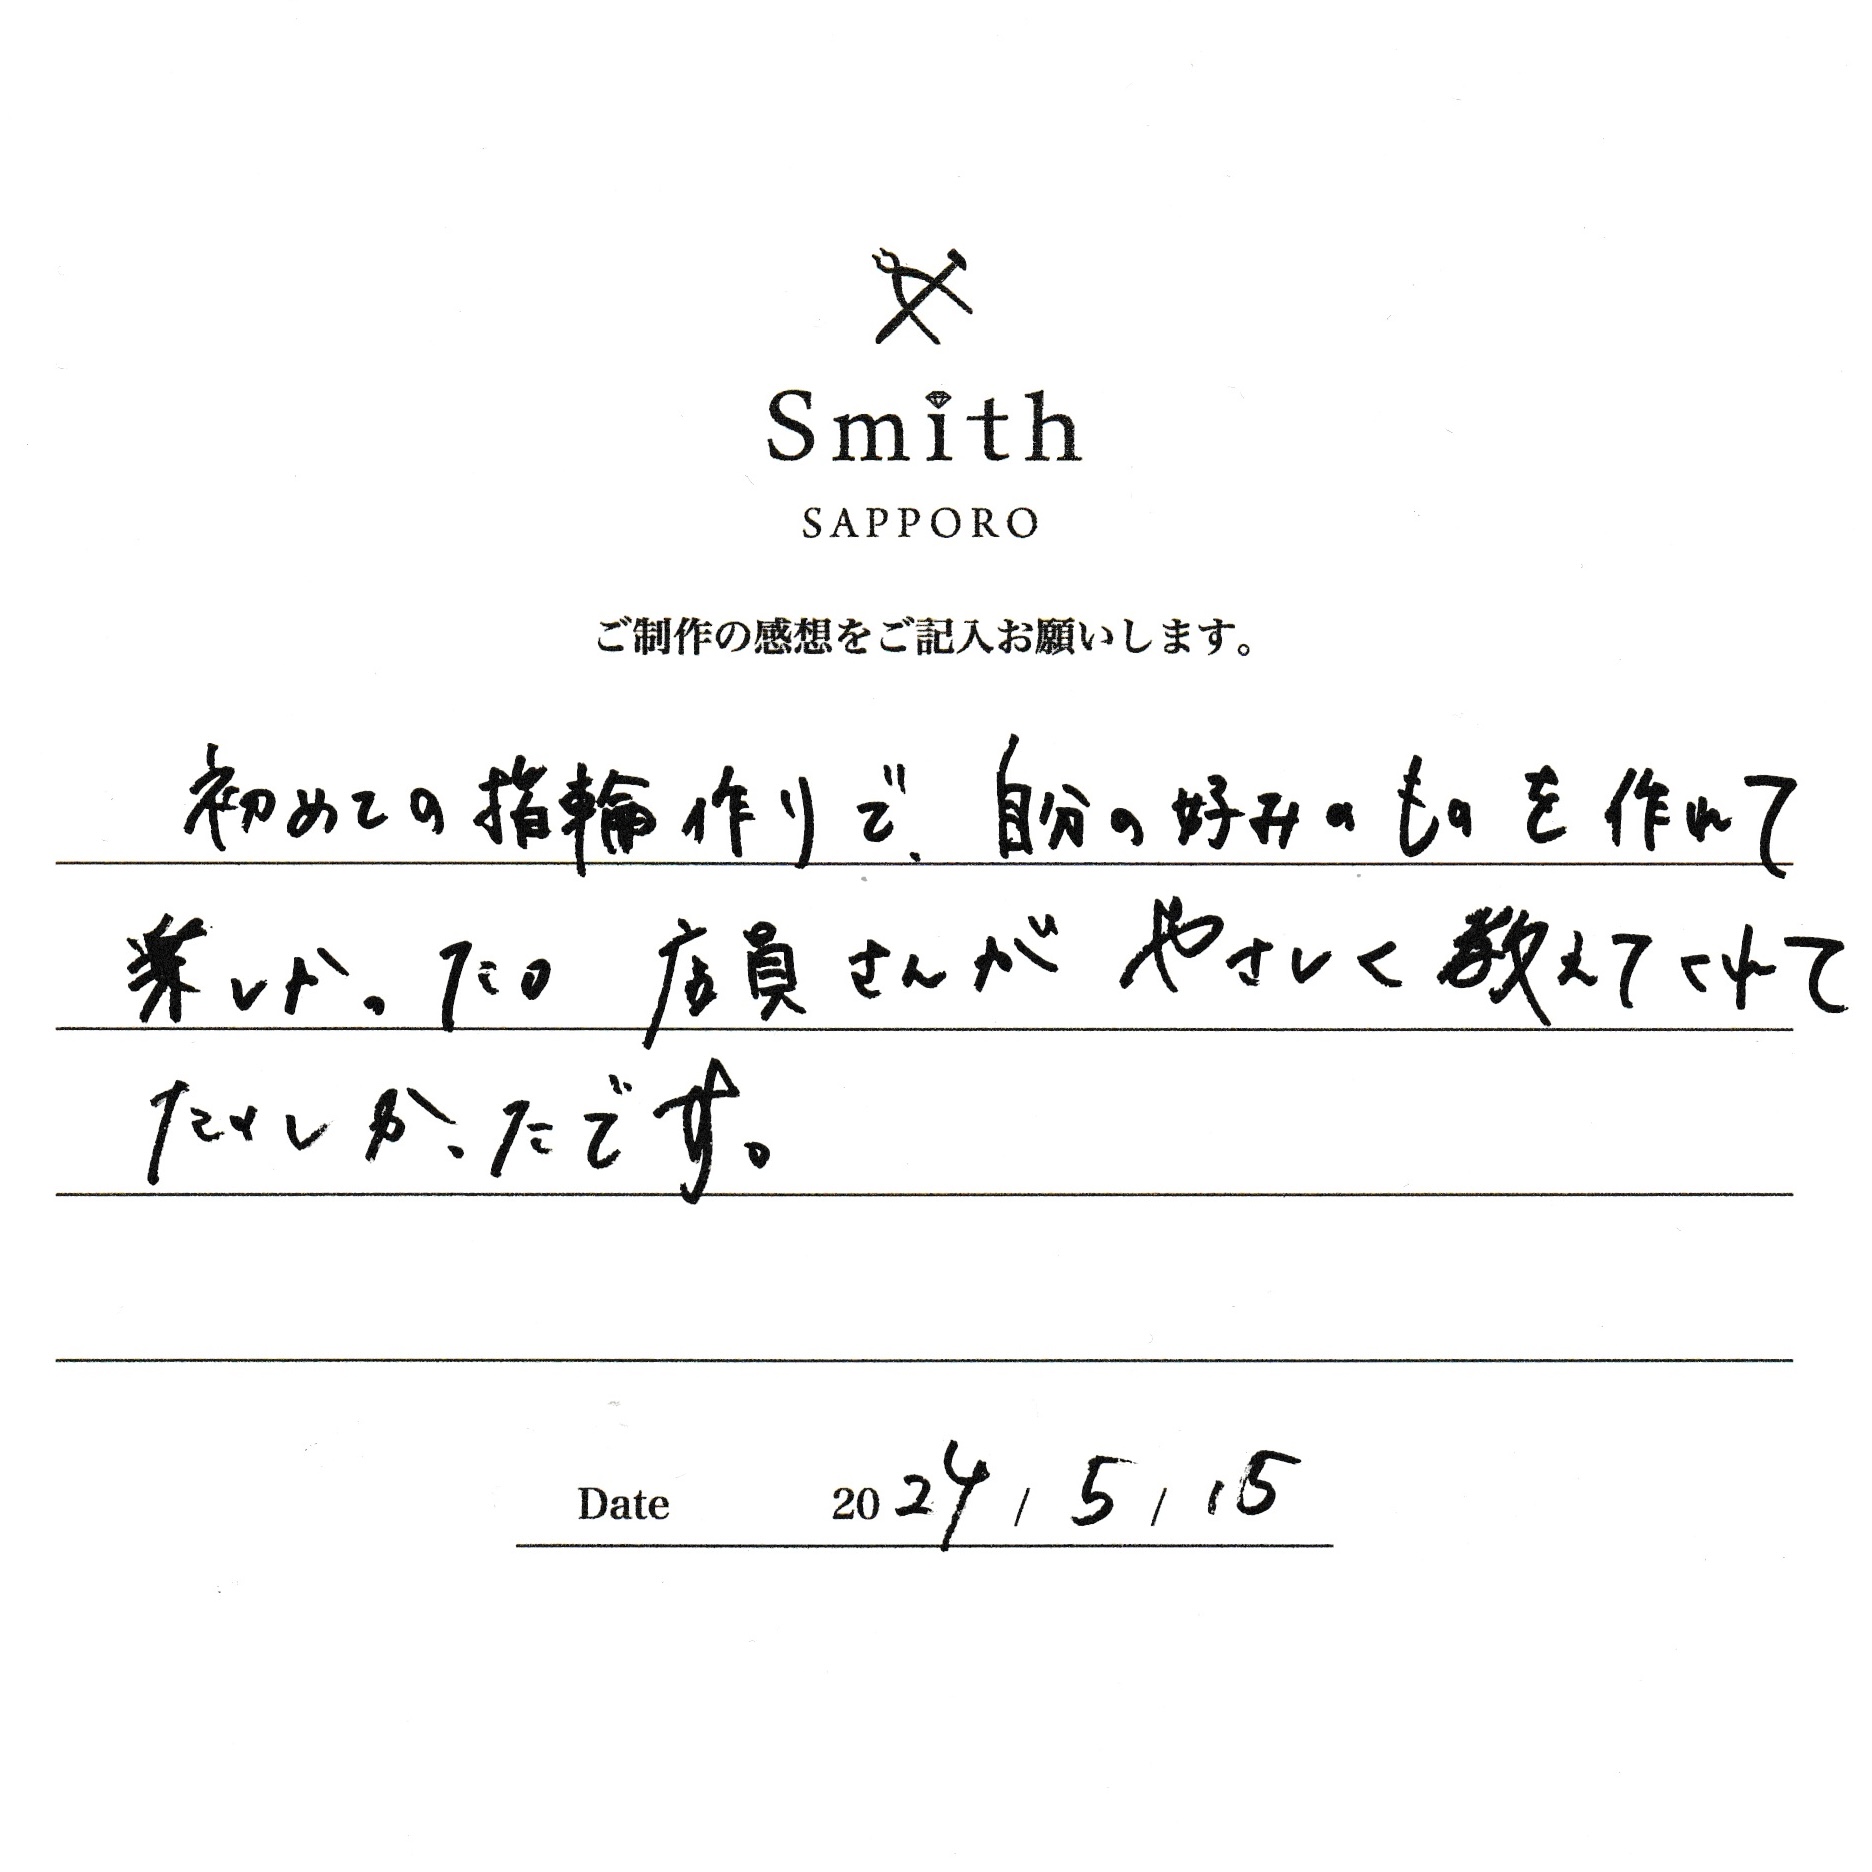 Smith
SAPPORO
ご制作の感想をご記入お願いします。
初めての指輪作りで、自分の好みのものを作れて
楽しかった。店員さんがやさしく教えてくれて
たのしかったです。
Date 2024 / 5 / 15